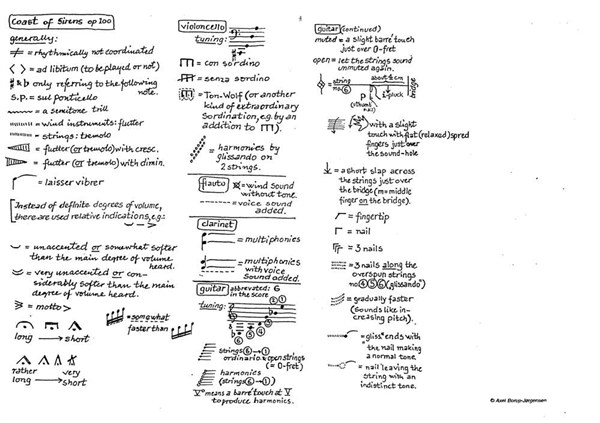 Coast of Sirens op 100
generally:
= rhythmically not coordinated
< > = ad libitum (to be played or not)
♯ & ♭ only referring to the following
note.
S.P. = sul ponticello
= a semitone trill
= wind instruments: flutter
= strings: tremolo
= flutter (or tremolo) with cresc.
= flutter (or tremolo) with dimin.
= laisser vibrer
Instead of definite degrees of volume,
there are used relative indications, e.g:
= unaccented or somewhat softer
than the main degree of volume
heard.
= very unaccented or con-
siderably softer than the main
degree of volume heard.
= molto >
long → short
= somewhat
faster than
rather very
long → short
violoncello
tuning:
= con sordino
= senza sordino
= Ton-Wolf (or another
kind of extraordinary
Sordination, e.g. by an
addition to ).
= harmonics by
glissando on
2 strings.
flauto
= wind sound
without tone.
= voice sound
added.
clarinet
= multiphonics
= multiphonics
with voice
Sound added.
guitar abbrevated: G
in the score
tuning:
② ①
⑥ ⑤ ④ ③
strings ⑥ → ①
ordinario: open strings
(= 0-fret)
harmonics
(strings ⑥ → ①)
"V" means a barré touch at V
to produce harmonics.
guitar (continued)
muted = a slight barré touch
just over 0-fret
open = let the strings sound
unmuted again.
= string
no. ⑥
about 4 cm
bridge
P
(= thumb
nail)
i-pluck
with a slight
touch with flat (relaxed) spred
fingers just over
the sound-hole
= a short slap across
the strings just over
the bridge (m = middle
finger on the bridge).
= fingertip
= nail
= 3 nails
= 3 nails along the
overspun strings
no. ④ ⑤ ⑥ (glissando)
= gradually faster
(sounds like in-
creasing pitch).
= gliss. ends with
the nail making
a normal tone
= nail leaving the
string with an
indistinct tone.
© Axel Borup-Jørgensen